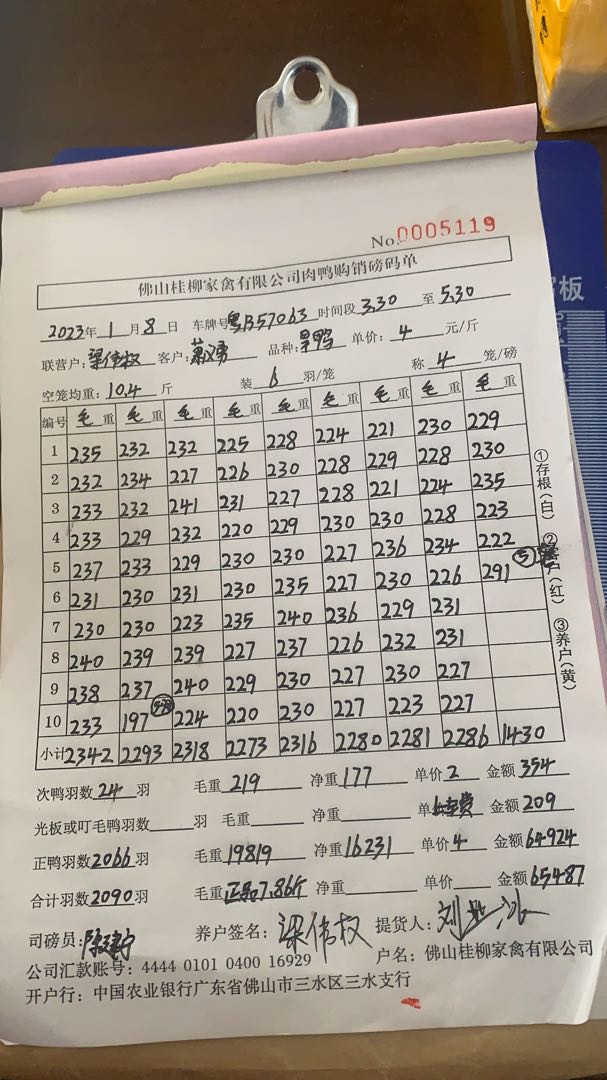 No.0005119
佛山桂柳家禽有限公司肉鸭购销磅码单
2023年 1 月 8 日 车牌号粤B57063 时间段3.30 至 5.30
联营户:梁伟权 客户: 品种:旱鸭 单价: 4 元/斤
空笼均重: 10.4 斤 装 6 羽/笼 称 4 笼/磅
编号 毛重 毛重 毛重 毛重 毛重 毛重 毛重 毛重 毛重
1 235 232 232 225 228 224 221 230 229
2 232 234 227 226 230 228 229 228 230
3 233 232 241 231 227 228 221 224 235
4 233 229 232 220 229 230 230 228 223
5 237 233 229 230 230 227 236 234 222
6 231 230 231 230 235 227 230 226 291 ⑤
7 230 230 223 235 240 236 229 231
8 240 239 239 227 237 226 232 231
9 238 237 240 229 230 227 230 227
10 233 197 224 220 230 227 223 227
小计 2342 2293 2318 2273 2316 2280 2281 2286 1430
①存根(白) ②客户(红) ③养户(黄)
次鸭羽数 24 羽 毛重 219 净重 177 单价 2 金额 354
光板或叮毛鸭羽数 羽 毛重 净重 单 金额 209
正鸭羽数2066羽 毛重19819 净重16231 单价 4 金额64924
合计羽数2090羽 毛重正品7.86斤 净重 单价 金额65487
司磅员: 养户签名:梁伟权 提货人:
公司汇款账号:4444 0101 0400 16929 户名:佛山桂柳家禽有限公司
开户行:中国农业银行广东省佛山市三水区三水支行